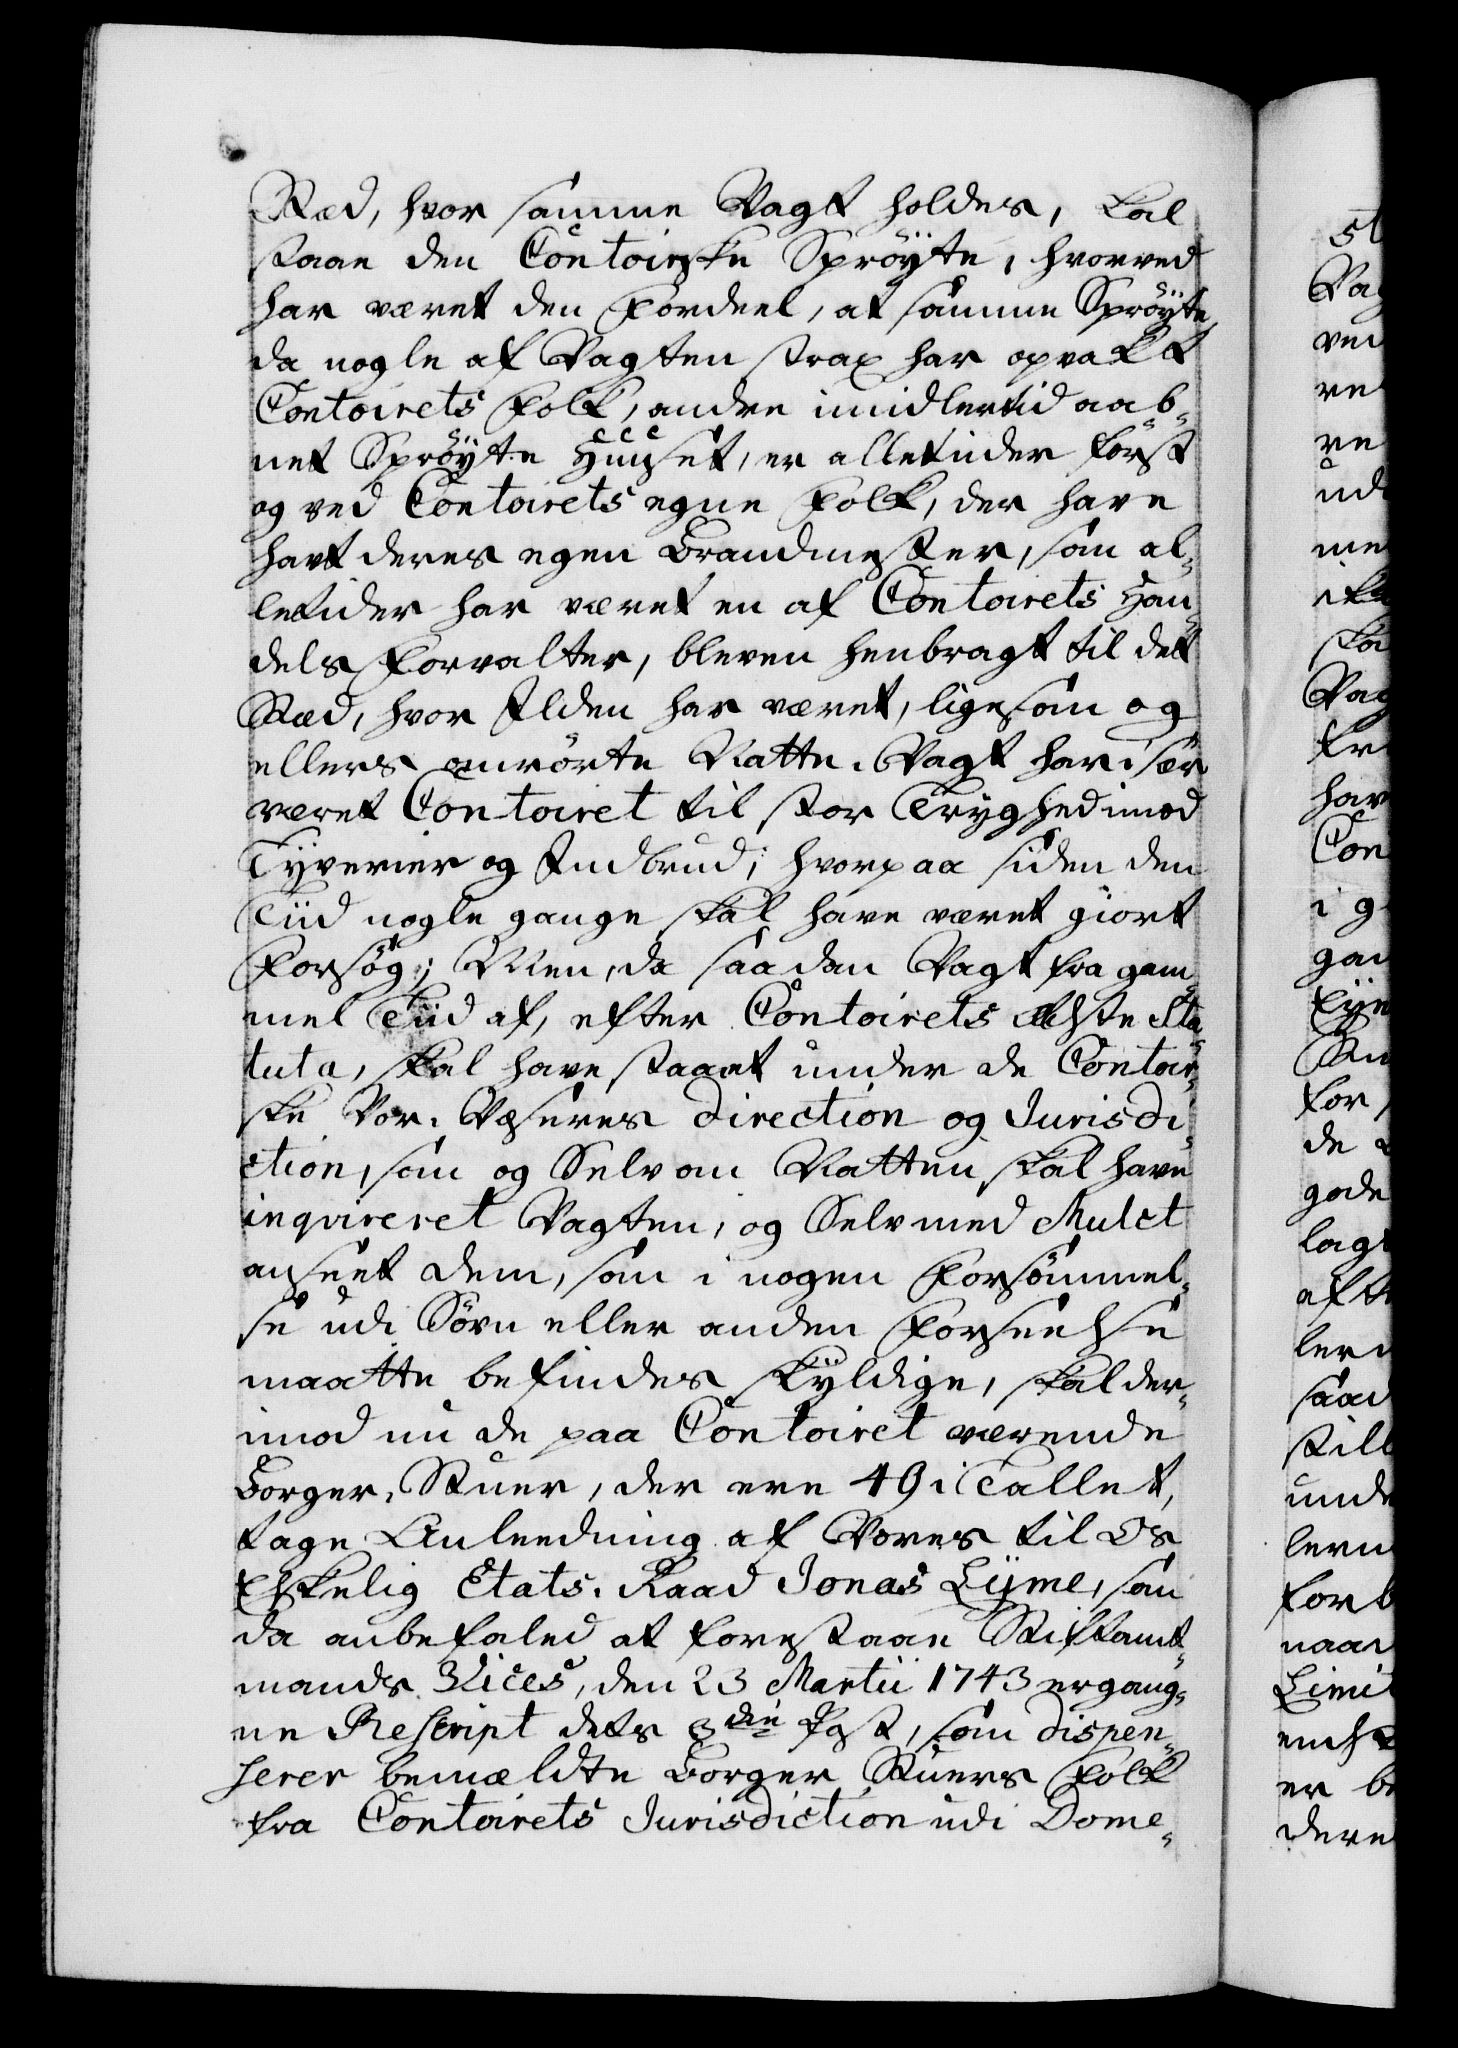 Stæd, hvor samme Vagt holdes, skal
staae den Contoirske Sprøyte, hvorved
har været den Fordeel, at samme Sprøyte,
da nogle af Vagten strax har opvakt
Contoirets Folk, andre imidlertid aab-
net Sprøyte Huuset, er alletider først
og ved Contoirets egne Folk, der have
havt deres egen Brandmester, som al-
letider har været en af Contoirets Han-
dels Forvalter, bleven henbragt til det
Stæd, hvor Ilden har været, ligesom og
ellers omrørte Natte-Vagt har især
været Contoiret til stor Tryghed imod
Tyverier og Indbrud; hvorpaa siden den
Tiid nogle gange skal have været giort
Forsøg; Men, da saadan Vagt fra gam-
mel Tiid af, efter Contoirets Ælste Sta-
tuta, skal have staaet under de Contoir-
ske Vor-Væseres Direction og Jurisdi-
ction, som og Selv om Natten skal have
inqvireret Vagten, og Selv med Mulct
anseet dem, som i nogen Forsømmel-
se udi Søvn eller anden Forseelse
maatte befindes skyldige, skal der-
imod nu de paa Contoiret værende
Borger-Stuer, der ere 49 i Tallet,
tage Anleedning af Vores til Os
Elskelig Etats-Raad Jonas Lyme, som
da anbefaled at forestaae Stiftamt-
mands Vices, den 23 Martii 1743 ergang-
ne Rescript dets 3die Post, som dispen-
serer bemældte Borger Stuers Folk
fra Contoirets Jurisdiction udi Dome-